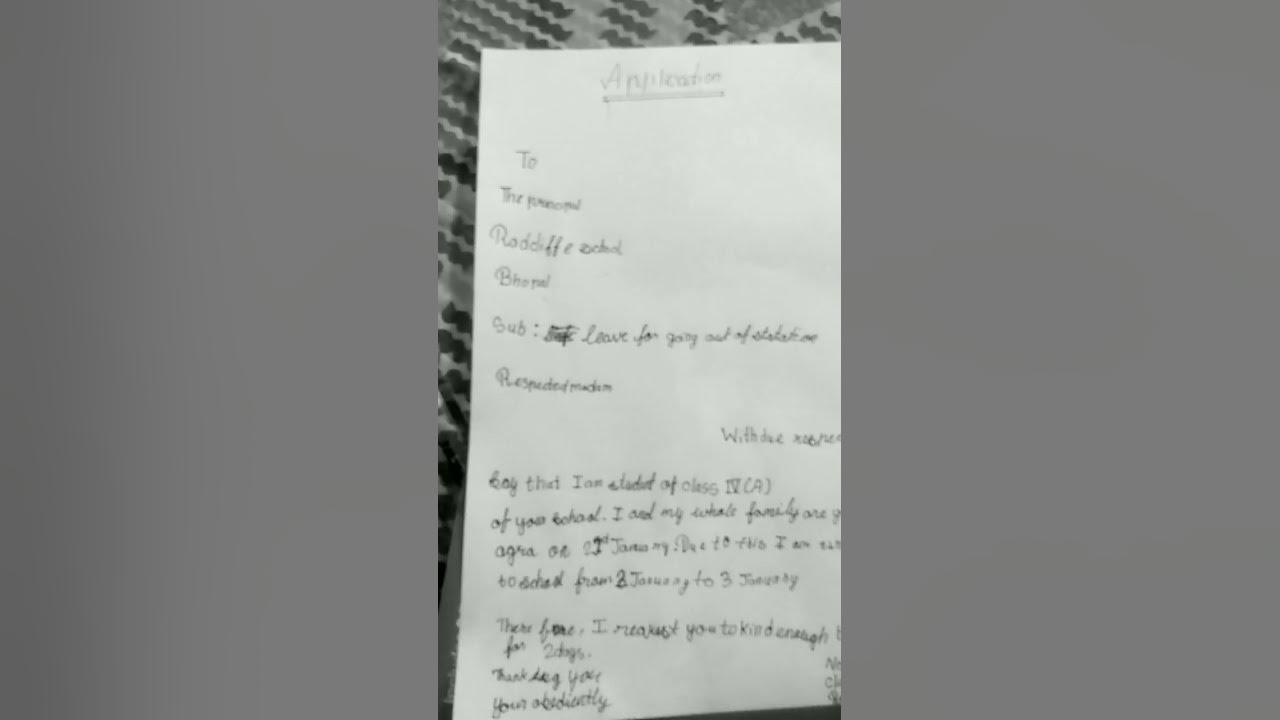 Application
To
The principal
Radcliffe school
Bhopal
Sub: leave for going out of statation
Respected madam
With due respec
Say that I am student of class IV(A)
of your school. I and my whole family are g
agra on January. Due to this I am
to school from 2 January to 3 January
There fore, I reaxest you to kind enough t
for 2 days.
Thanking you
Your obediently